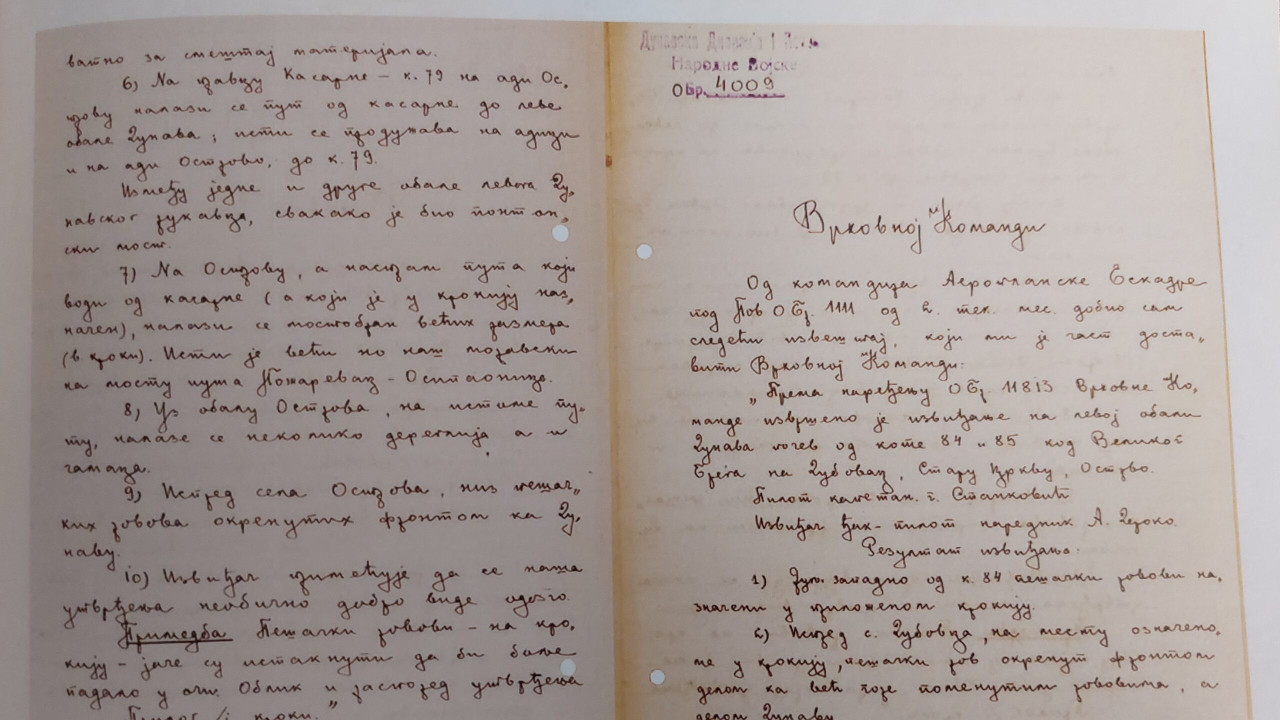 ватно за смештај материјала.
6) На правцу Касарне – к. 79 на ади Ос,
трову налази се пут од касарне до леве
обале Дунава; исти се продужава на адици
и на ади Острово, до к. 79.
Између једне и друге обале левога Ду,
навског рукавца, свакако је био понтон,
ски мост.
7) На Острову, а насупрам пута који
води од касарне (а који је у крокију наз,
начен), налази се мостобран већих размера
(в кроки). Исти је већи но наш моравски
на мосту пута Пожаревац – Осипаоница.
8) Уз обалу Острова, на истоме пу,
ту, налазе се неколико дереглија а и
чамаца.
9) Испред села Острова, низ пешач,
ких ровова окренутих фронтом ка Ду,
наву.
10) Извиђач примећује да се наша
утврђења необично добро виде одозго.
Примедба Пешачки ровови – на кро,
кију – јаче су истакнути да би боље
падало у очи. Облик и распоред утврђења
Прилог 1/ кроки."
Дунавска Дивизија I Поз.
Народне Војске
ОБр. 4009
Врховној Команди
Од командира Аеропланске Ескадре
под Пов ОБр. 1111 од 2. тек. мес. добио сам
следећи извештај, који ми је част доста,
вити Врховној Команди:
„Према наређењу ОБр 11813 Врховне Ко,
манде извршено је извиђање на левој обали
Дунава почев од коте 84 и 85 код Великог
Брега на Дубовац, Стару Цркву, Острво.
Пилот капетан. г. Станковић
Извиђач ђак-пилот наредник А. Дероко.
Резултат извиђања:
1) Југо. западно од к. 84 пешачки ровови на,
значени у приложеном крокију.
2) Испред с. Дубовца, на месту означено,
ме у крокију, пешачки ров окренут фронтом
делом ка већ горе поменутим рововима, а
делом Дунаву.